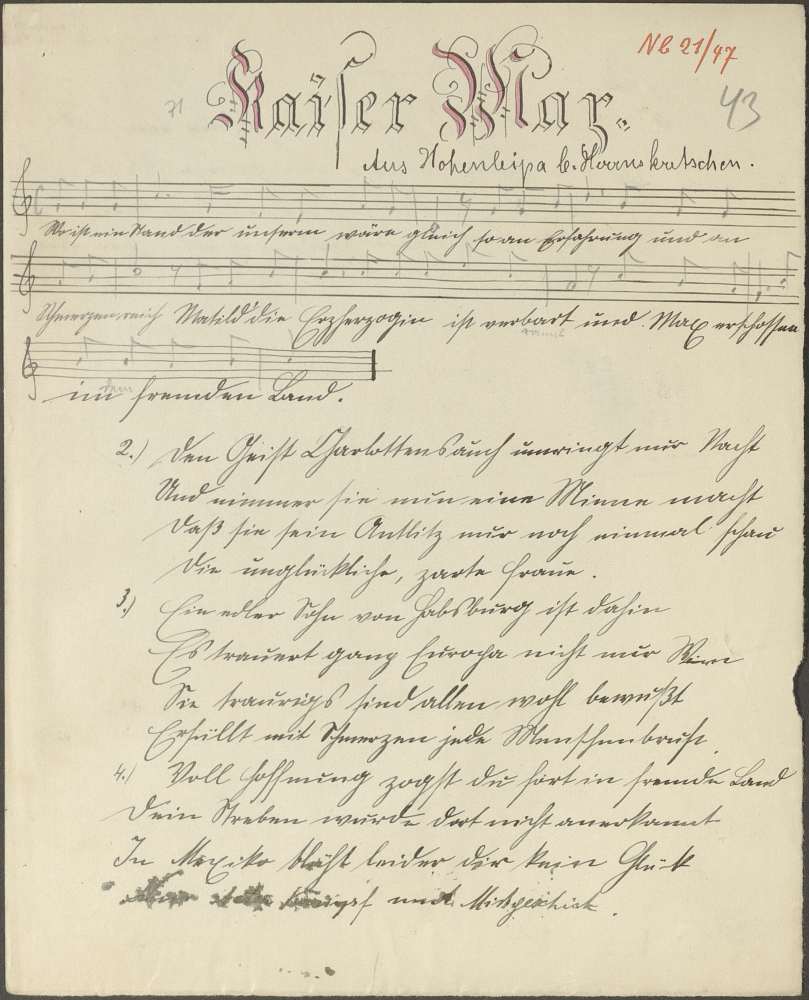 Nb 21/47
71
43
Kaiser Max.
Aus Hohenleipa b.
Wo ist ein Stand der unserm wäre gleich so an Erfahrung und an
Schmerzen reich Matild' die Erzherzogin ist verbart und Max erschossen
im fremden Land.
dem
2.) Den Geist Charlottens auch umringt nur Nacht
Und nimmer sie nun eine Minne macht
Daß sie sein Antlitz nur noch einmal schau
Die unglückliche, zarte Fraue.
3.) Ein edler Sohn von Habsburg ist dahin
Es trauert ganz Europa nicht nur Wien
Die traurigs sind allen wohl bewußt
Erfüllt mit Schmerzen jede Menschenbrust.
4.) Voll Hoffnung zogst du fort in fremde Land
Dein Streben wurde dort nicht anerkannt
In Mexiko blüht leider dir kein Glück
und Mißgeschick.